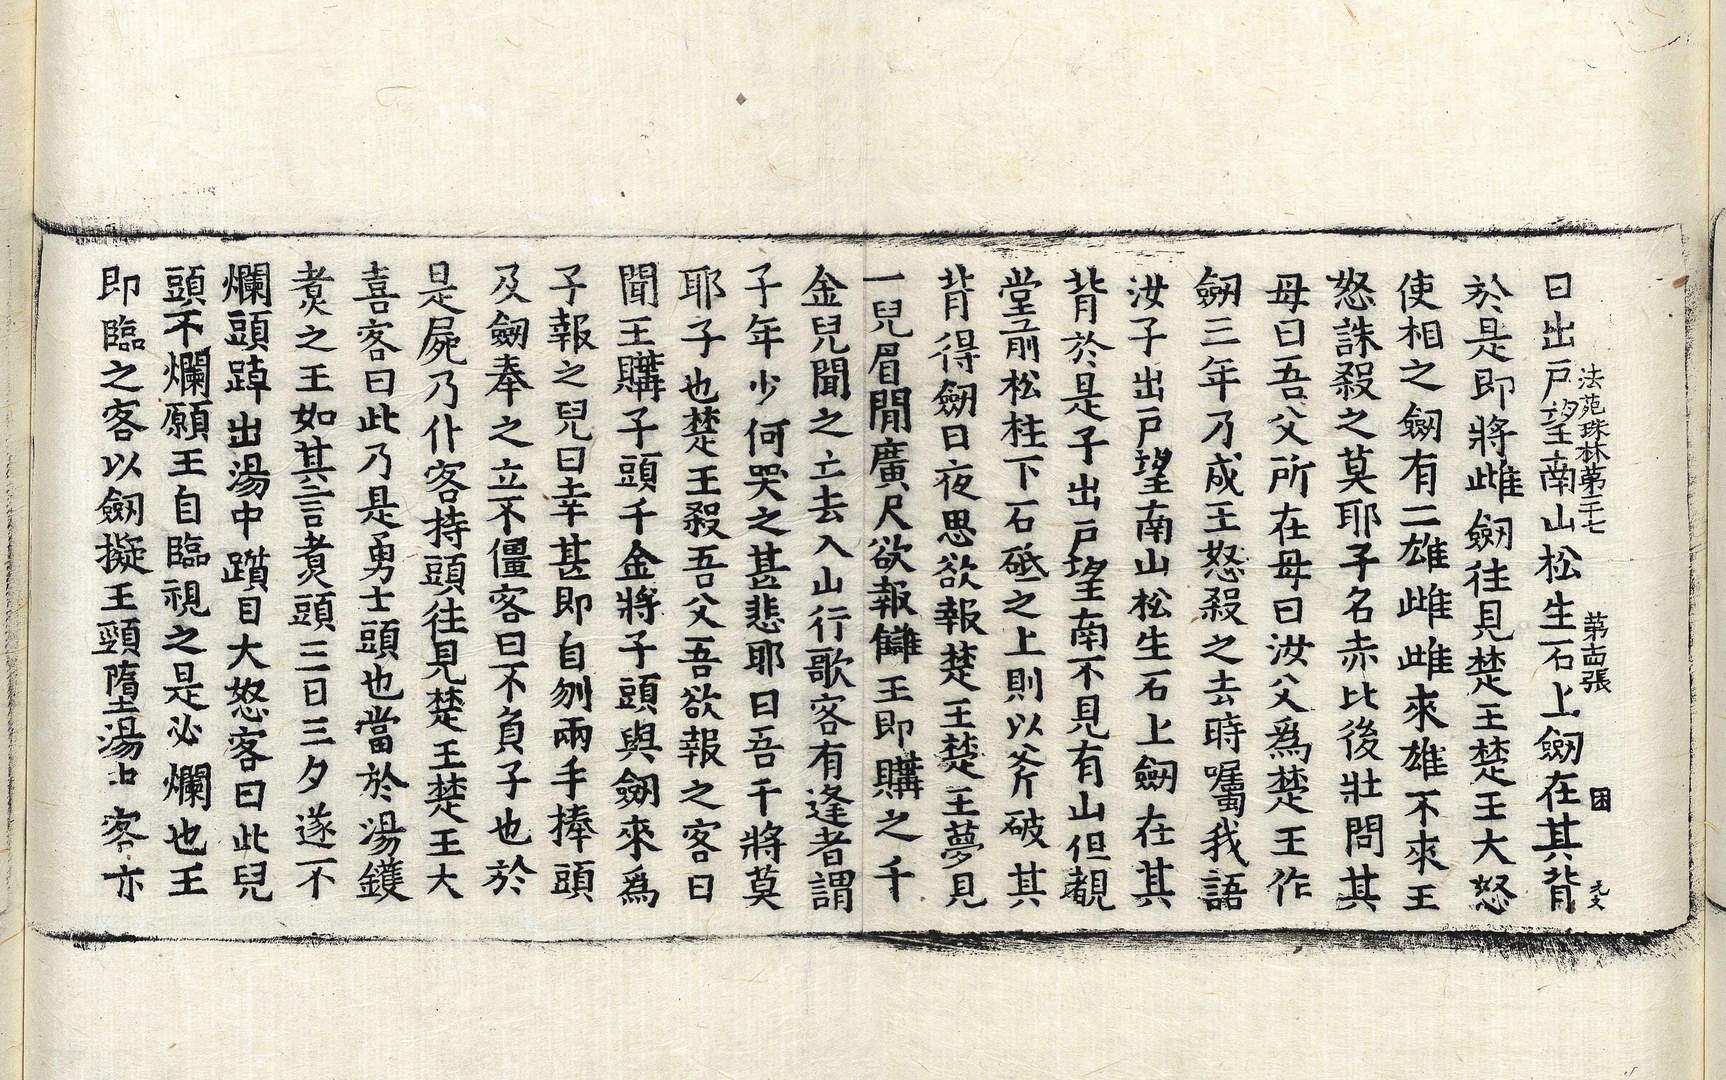 曰出戶望南山松生石上劒在其背
法苑珠林第二十七 第十四張 困 元文
於是即將雌劒往見楚王楚王大怒
使相之劒有二雄雌雌來雄不來王
怒誅殺之莫耶子名赤比後壯問其
母曰吾父所在母曰汝父爲楚王作
劒三年乃成王怒殺之去時囑我語
汝子出戶望南山松生石上劒在其
背於是子出戶望南不見有山但覩
堂前松柱下石砥之上則以斧破其
背得劒日夜思欲報楚王楚王夢見
一兒眉間廣尺欲報讎王即購之千
金兒聞之亡去入山行歌客有逢者謂
子年少何哭之甚悲耶曰吾干將莫
耶子也楚王殺吾父吾欲報之客曰
聞王購子頭千金將子頭與劒來爲
子報之兒曰幸甚即自刎兩手捧頭
及劒奉之立不僵客曰不負子也於
是屍乃仆客持頭往見楚王楚王大
喜客曰此乃是勇士頭也當於湯鑊
煑之王如其言煑頭三日三夕遂不
爛頭踔出湯中躓目大怒客曰此兒
頭不爛願王自臨視之是必爛也王
即臨之客以劒擬王頸墮湯中客亦